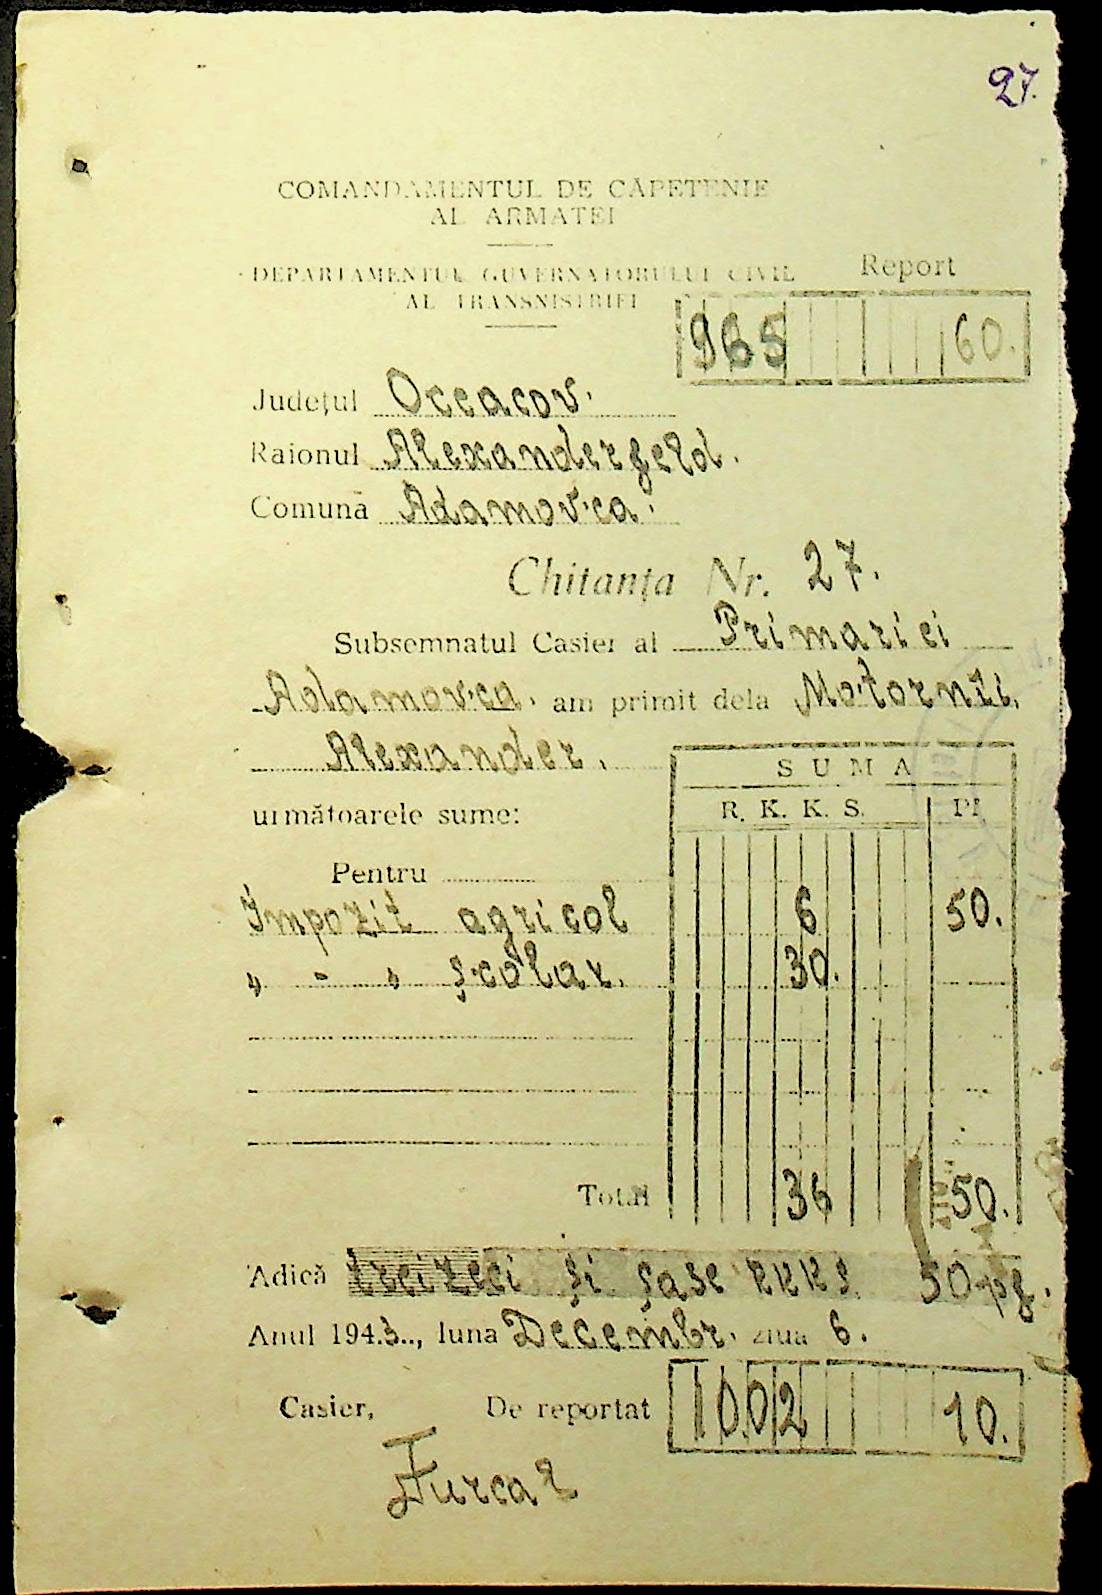 27.
COMANDAMENTUL DE CĂPETENIE
AL ARMATEI
DEPARTAMENTUL GUVERNATORULUI CIVIL
AL TRANSNISTRIEI
Report
965 60.
Județul Oceacov.
Raionul Alexanderfeld.
Comună Adamovca.
Chitanța Nr. 27.
Subsemnatul Casier al Primariei
Adamovca. am primit dela Motornii,
Alexander.
SUMA
următoarele sume:
R. K. K. S. Pf
Pentru
Impozit agricol 6 50.
„ - „ școlar. 30.
Total 36 50.
Adică treizeci și șase RKKS 50 pf.
Anul 1943.., luna Decembr. ziua 6.
Casier, De reportat 1002 10.